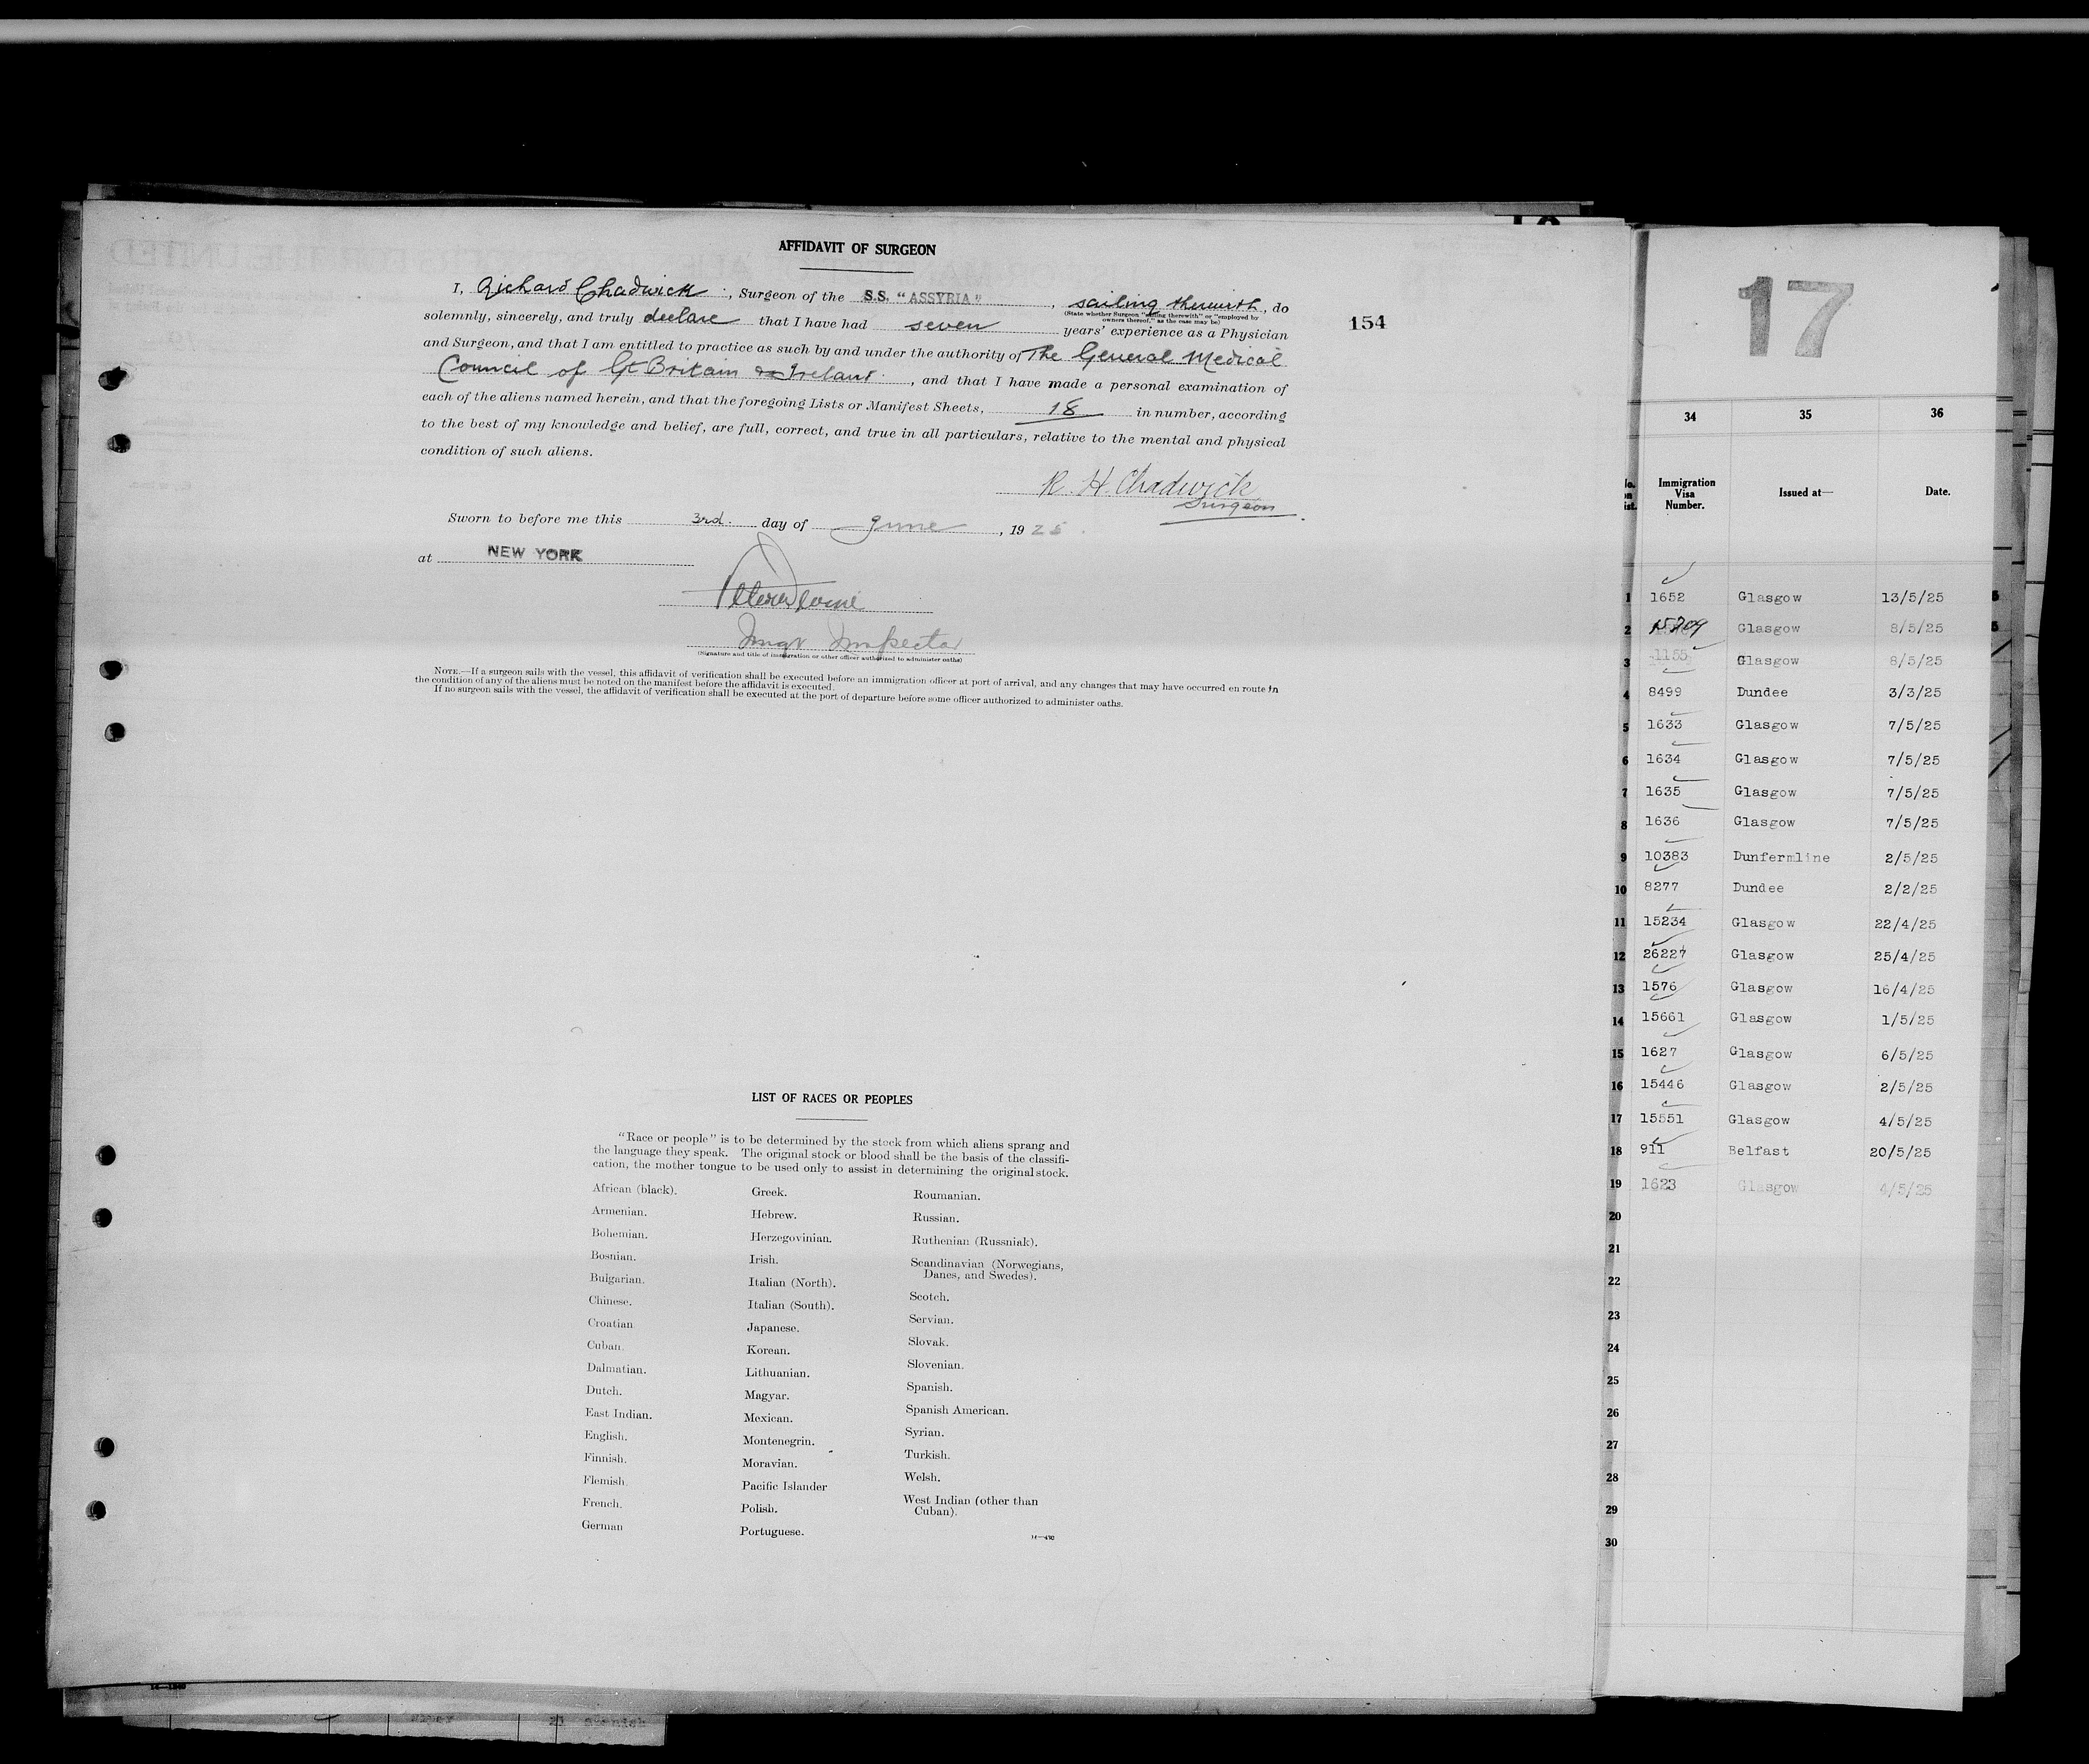 AFFIDAVIT OF SURGEON
I, Richard Chadwick, Surgeon of the S.S. "ASSYRIA", sailing therewith, do
(State whether Surgeon "sailing therewith" or "employed by
owners thereof," as the case may be)
solemnly, sincerely, and truly declare that I have had seven years' experience as a Physician
and Surgeon, and that I am entitled to practice as such by and under the authority of The General Medical
Council of Gt Britain & Ireland, and that I have made a personal examination of
each of the aliens named herein, and that the foregoing Lists or Manifest Sheets, 18 in number, according
to the best of my knowledge and belief, are full, correct, and true in all particulars, relative to the mental and physical
condition of such aliens.
R. H. Chadwick
Surgeon
Sworn to before me this 3rd. day of June, 1925.
at NEW YORK
Imgr Inspector
(Signature and title of immigration or other officer authorized to administer oaths)
NOTE.—If a surgeon sails with the vessel, this affidavit of verification shall be executed before an immigration officer at port of arrival, and any changes that may have occurred en route in
the condition of any of the aliens must be noted on the manifest before the affidavit is executed.
If no surgeon sails with the vessel, the affidavit of verification shall be executed at the port of departure before some officer authorized to administer oaths.
154
LIST OF RACES OR PEOPLES
"Race or people" is to be determined by the stock from which aliens sprang and
the language they speak. The original stock or blood shall be the basis of the classifi-
cation, the mother tongue to be used only to assist in determining the original stock.
African (black).
Armenian.
Bohemian.
Bosnian.
Bulgarian.
Chinese.
Croatian
Cuban.
Dalmatian.
Dutch.
East Indian.
English.
Finnish.
Flemish.
French.
German
Greek.
Hebrew.
Herzegovinian.
Irish.
Italian (North).
Italian (South).
Japanese.
Korean.
Lithuanian.
Magyar.
Mexican.
Montenegrin.
Moravian.
Pacific Islander
Polish.
Portuguese.
Roumanian.
Russian.
Ruthenian (Russniak).
Scandinavian (Norwegians,
Danes, and Swedes).
Scotch.
Servian.
Slovak.
Slovenian.
Spanish.
Spanish American.
Syrian.
Turkish.
Welsh.
West Indian (other than
Cuban).
17
34 35 36
Immigration
Visa
Number.
Issued at—
Date.
1 1652 Glasgow 13/5/25
2 15709 Glasgow 8/5/25
3 1155 Glasgow 8/5/25
4 8499 Dundee 3/3/25
5 1633 Glasgow 7/5/25
6 1634 Glasgow 7/5/25
7 1635 Glasgow 7/5/25
8 1636 Glasgow 7/5/25
9 10383 Dunfermline 2/5/25
10 8277 Dundee 2/2/25
11 15234 Glasgow 22/4/25
12 26227 Glasgow 25/4/25
13 1576 Glasgow 16/4/25
14 15661 Glasgow 1/5/25
15 1627 Glasgow 6/5/25
16 15446 Glasgow 2/5/25
17 15551 Glasgow 4/5/25
18 911 Belfast 20/5/25
19 1623 Glasgow 4/5/25
20
21
22
23
24
25
26
27
28
29
30